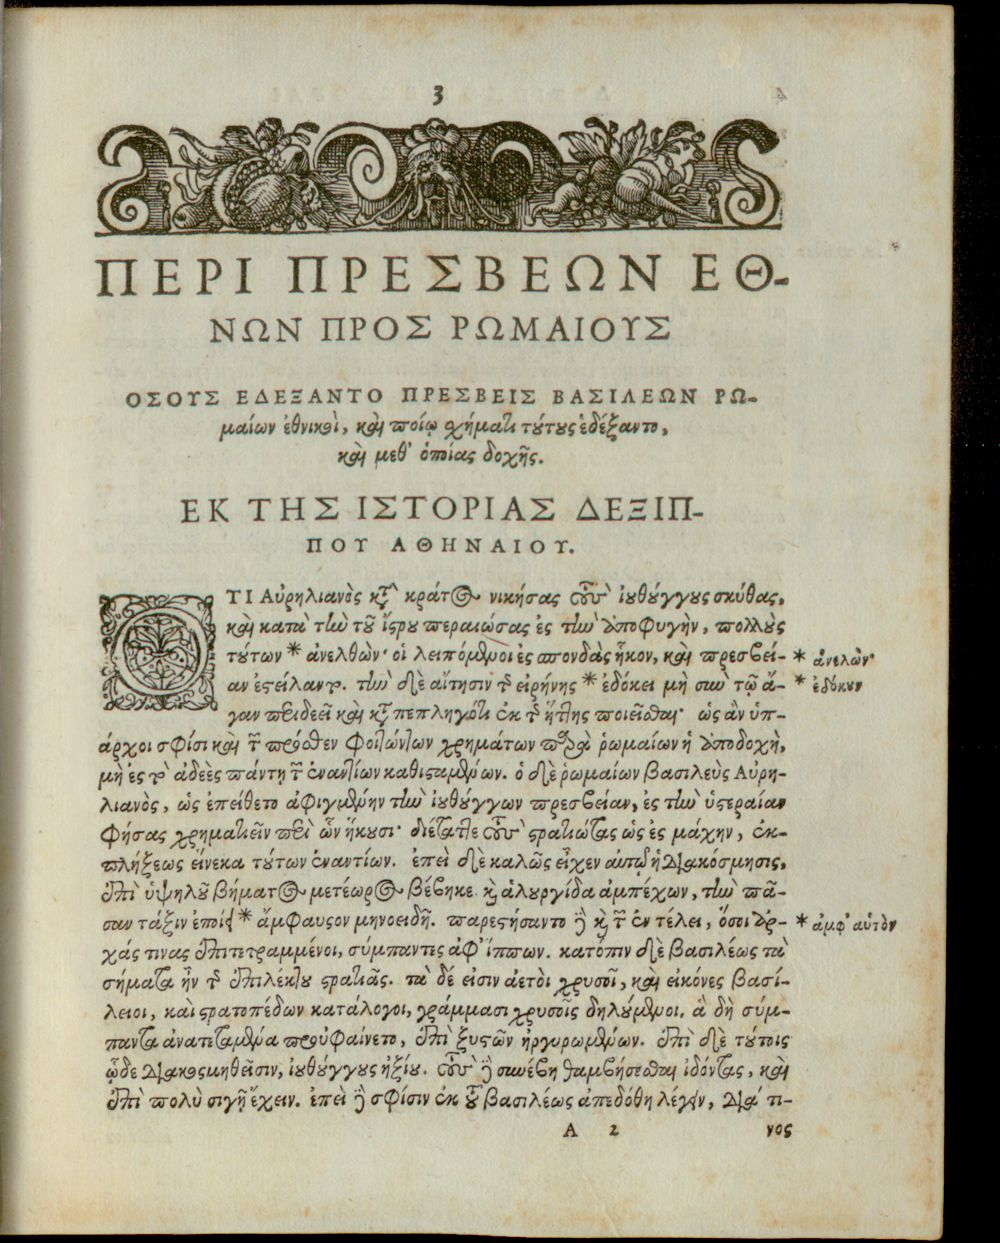 3
ΠΕΡΙ ΠΡΕΣΒΕΩΝ ΕΘ-
ΝΩΝ ΠΡΟΣ ΡΩΜΑΙΟΥΣ
ΟΣΟΥΣ ΕΔΕΞΑΝΤΟ ΠΡΕΣΒΕΙΣ ΒΑΣΙΛΕΩΝ ΡΩ-
μαίων ἐθνικοὶ, καὶ ποίῳ σχήματι τούτους ἐδέξαντο,
καὶ μεθ' ὁποίας δοχῆς.
ΕΚ ΤΗΣ ΙΣΤΟΡΙΑΣ ΔΕΞΙΠ-
ΠΟΥ ΑΘΗΝΑΙΟΥ.
ΟΤΙ Αὐρηλιανὸς κατὰ κράτος νικήσας τοὺς ἰουθούγγους σκύθας,
καὶ κατὰ τὴν τοῦ ἴστρου περαιώσας ἐς τὴν ἀποφυγὴν, πολλοὺς
τούτων * ἀνελθών· οἱ λειπόμενοι ἐς σπονδὰς ἧκον, καὶ πρεσβεί- * ἀνελὼν·
αν ἐστείλαντο. τὴν δὲ αἴτησιν τῆς εἰρήνης * ἐδόκει μὴ σὺν τῷ ἄ- * ἐδόκουν
γαν περιδεεῖ καὶ καταπεπληγότι ἐκ τῆς ἥττης ποιεῖσθαι· ὡς ἂν ὑπ-
άρχοι σφίσι καὶ τῶν πρόσθεν φοιτώντων χρημάτων παρὰ ῥωμαίων ἡ ἀποδοχὴ,
μὴ ἐς τὸ ἀδεὲς πάντη τῶν ἐναντίων καθισταμένων. ὁ δὲ ῥωμαίων βασιλεὺς Αὐρη-
λιανὸς, ὡς ἐπείθετο ἀφιγμένην τὴν ἰουθούγγων πρεσβείαν, ἐς τὴν ὑστεραίαν
φήσας χρηματιεῖν περὶ ὧν ἥκουσι· διέταττε τοὺς στρατιώτας ὡς ἐς μάχην, ἐκ-
πλήξεως εἵνεκα τούτων ἐναντίων. ἐπεὶ δὲ καλῶς εἶχεν αὐτῷ ἡ διακόσμησις,
ἐπὶ ὑψηλοῦ βήματος μετέωρος βέβηκε καὶ ἁλουργίδα ἀμπέχων, τὴν πᾶ-
σαν τάξιν ἐποίει * ἄμφαυσον μηνοειδῆ. παρεστήσαντο δὲ καὶ τῶν ἐν τέλει, ὅσοι ἀρ- * ἀμφ' αὑτὸν
χάς τινας ἐπιτετραμμένοι, σύμπαντες ἀφ' ἵππων. κατόπιν δὲ βασιλέως τὰ
σήματα ἦν τῆς ἐπιλέκτου στρατιᾶς. τὰ δέ εἰσιν ἀετοὶ χρυσοῖ, καὶ εἰκόνες βασί-
λειοι, καὶ στρατοπέδων κατάλογοι, γράμμασι χρυσοῖς δηλούμενοι. ἃ δὴ σύμ-
παντα ἀνατεταμένα προὐφαίνετο, ἐπὶ ξυστῶν ἠργυρωμένων. ἐπὶ δὲ τούτοις
ὧδε διακοσμηθεῖσιν, ἰουθούγγους ἠξίου. τοὺς δὲ συνέβη θαμβήσεσθαι ἰδόντας, καὶ
ἐπὶ πολὺ σιγῇ ἔχειν. ἐπεὶ δὲ σφίσιν ἐκ τοῦ βασιλέως ἀπεδόθη λέγειν, διά τι-
Α 2 νος